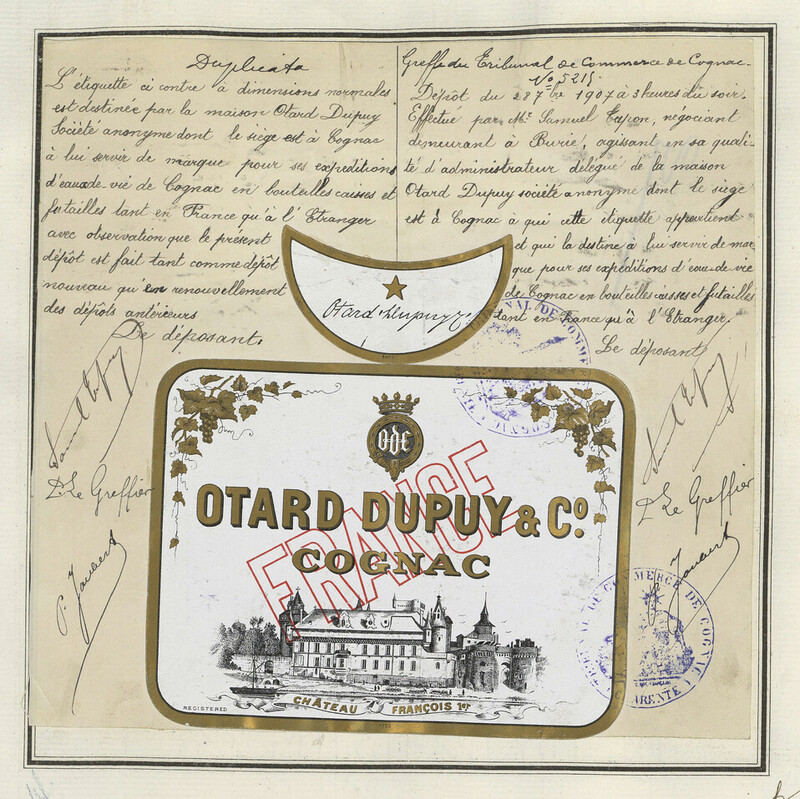 Duplicata
L'étiquette ci contre à dimensions normales
est destinée par la maison Otard Dupuy
Société anonyme dont le siège est à Cognac
à lui servir de marque pour ses expéditions
d'eau-de-vie de Cognac en bouteilles caisses et
futailles tant en France qu'à l'Etranger
avec observation que le présent
dépôt est fait tant comme dépôt
nouveau qu'en renouvellement
des dépôts antérieurs
Le déposant.
P. Le Greffier
P. Joubert
Greffe du Tribunal de Commerce de Cognac.
No 5215
Dépôt du 28 7bre 1907 à 3 heures du soir.
Effectué par Mr. Samuel, négociant
demeurant à Burie, agissant en sa quali-
té d'administrateur délégué de la maison
Otard Dupuy société anonyme dont le siège
est à Cognac à qui cette étiquette appartient
et qui la destine à lui servir de mar
que pour ses expéditions d'eau-de-vie
de Cognac en bouteilles caisses et futailles
tant en France qu'à l'Etranger.
Le déposant
P. Le Greffier
P. Joubert
Otard Dupuy & Co
ODC
OTARD DUPUY & Co.
COGNAC
FRANCE
CHÂTEAU FRANÇOIS 1er
REGISTERED
TRIBUNAL DE COMMERCE DE COGNAC
CHARENTE